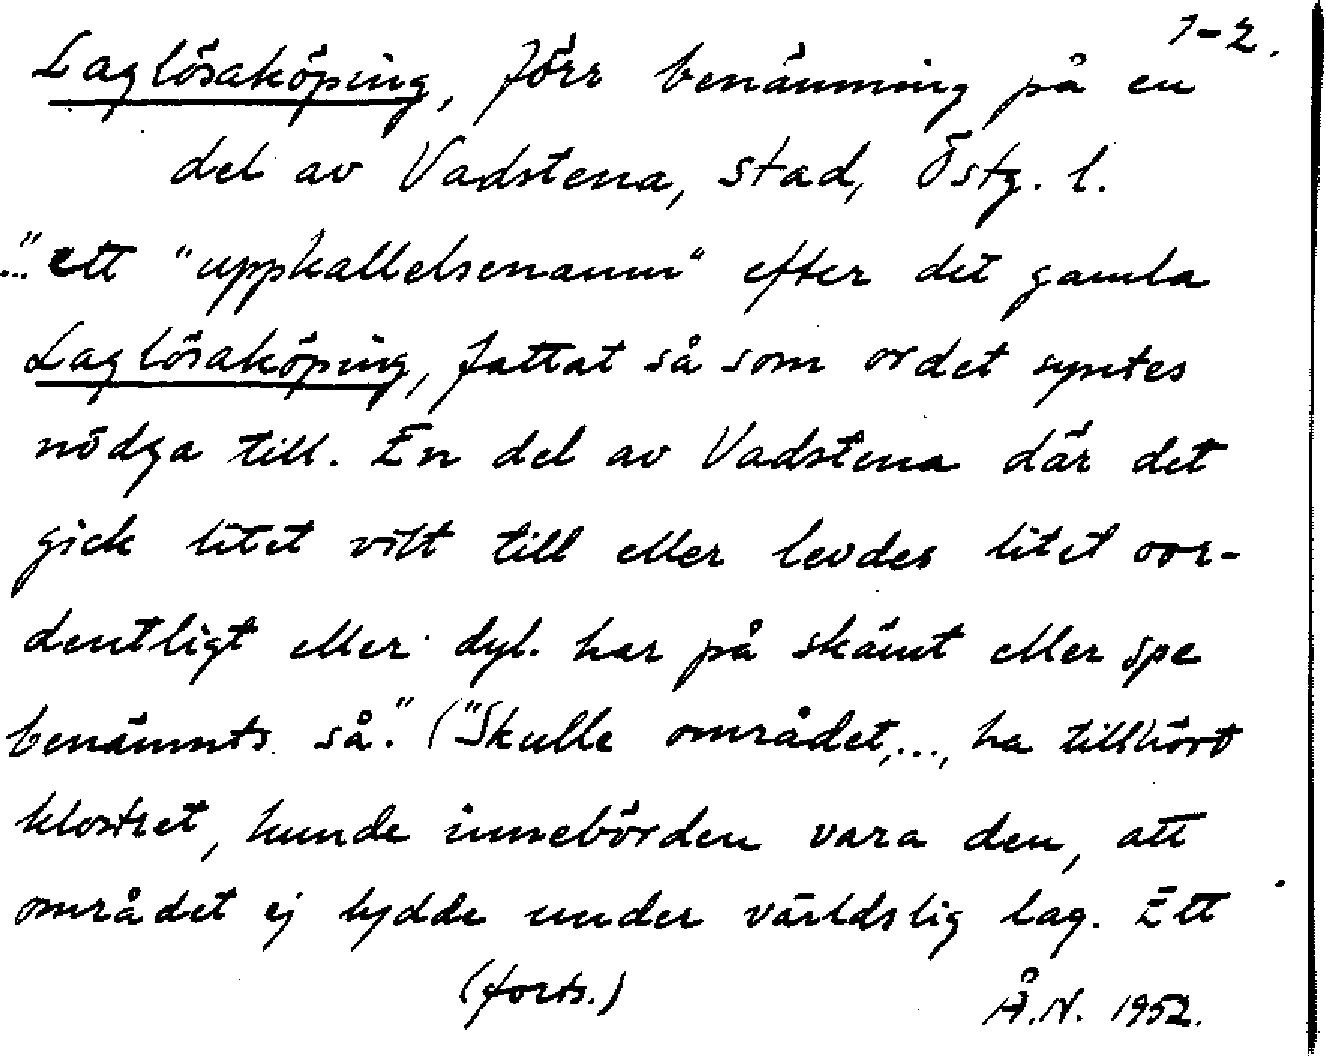 1-2.
Laglösaköping, förr benämning på en
del av Vadstena, stad, Östg. l.
..." ett "uppkallelsenamn" efter det gamla
Laglösaköping, fattat så som ordet syntes
nödga till. En del av Vadstena där det
gick litet vilt till eller levdes litet oor-
dentligt eller dyl. har på skämt eller spe
benämnts så." ("Skulle området,..., ha tillhört
klostret, kunde innebörden vara den, att
området ej lydde under världslig lag. Ett
(forts.)
Å.N. 1952.